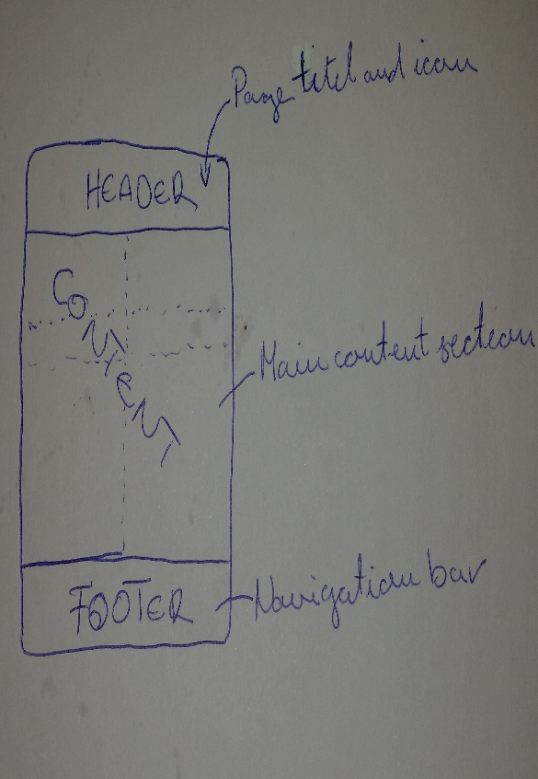 Page titel and icon
HEADER
CONTENT
Main content section
FOOTER
Navigation bar